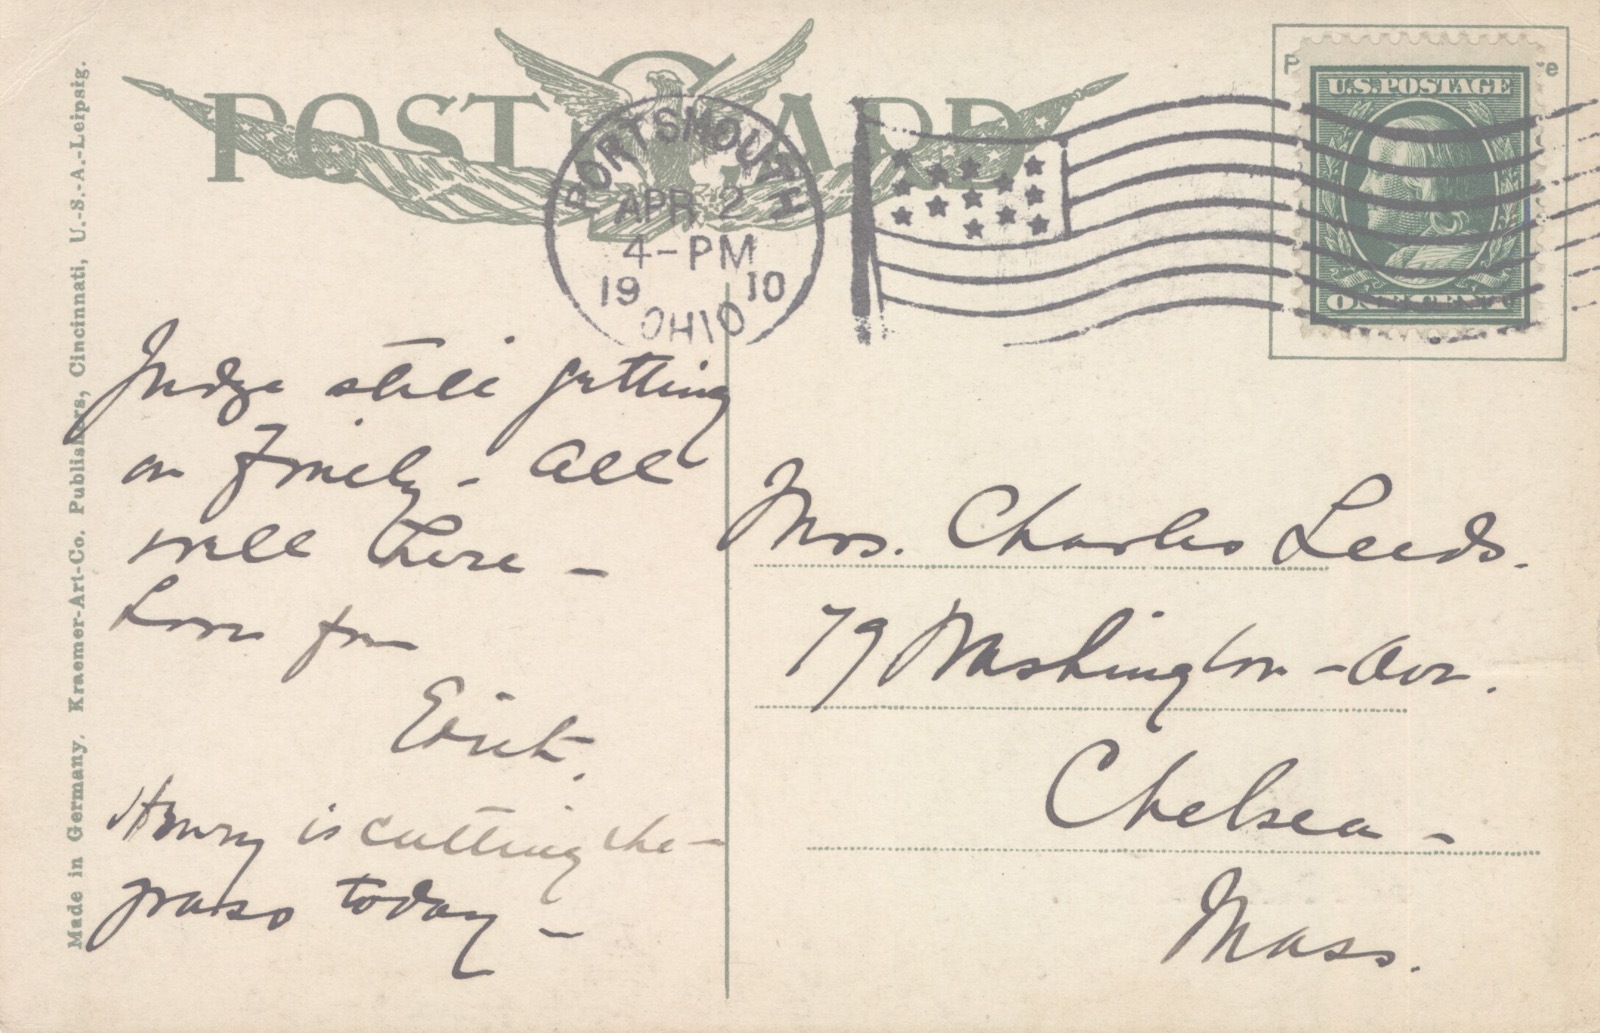 POST CARD
PORTSMOUTH
APR 2
4-PM
19 10
OHIO
U.S. POSTAGE
ONE CENT
Judge still getting
on finely - all
well here -
Love from
Mrs. Charles Leeds.
79 Washington - Ave.
Chelsea -
Mass.
Henry is cutting the -
grass today -
Made in Germany. Kraemer-Art-Co. Publishers, Cincinnati, U.-S.-A.-Leipsig.